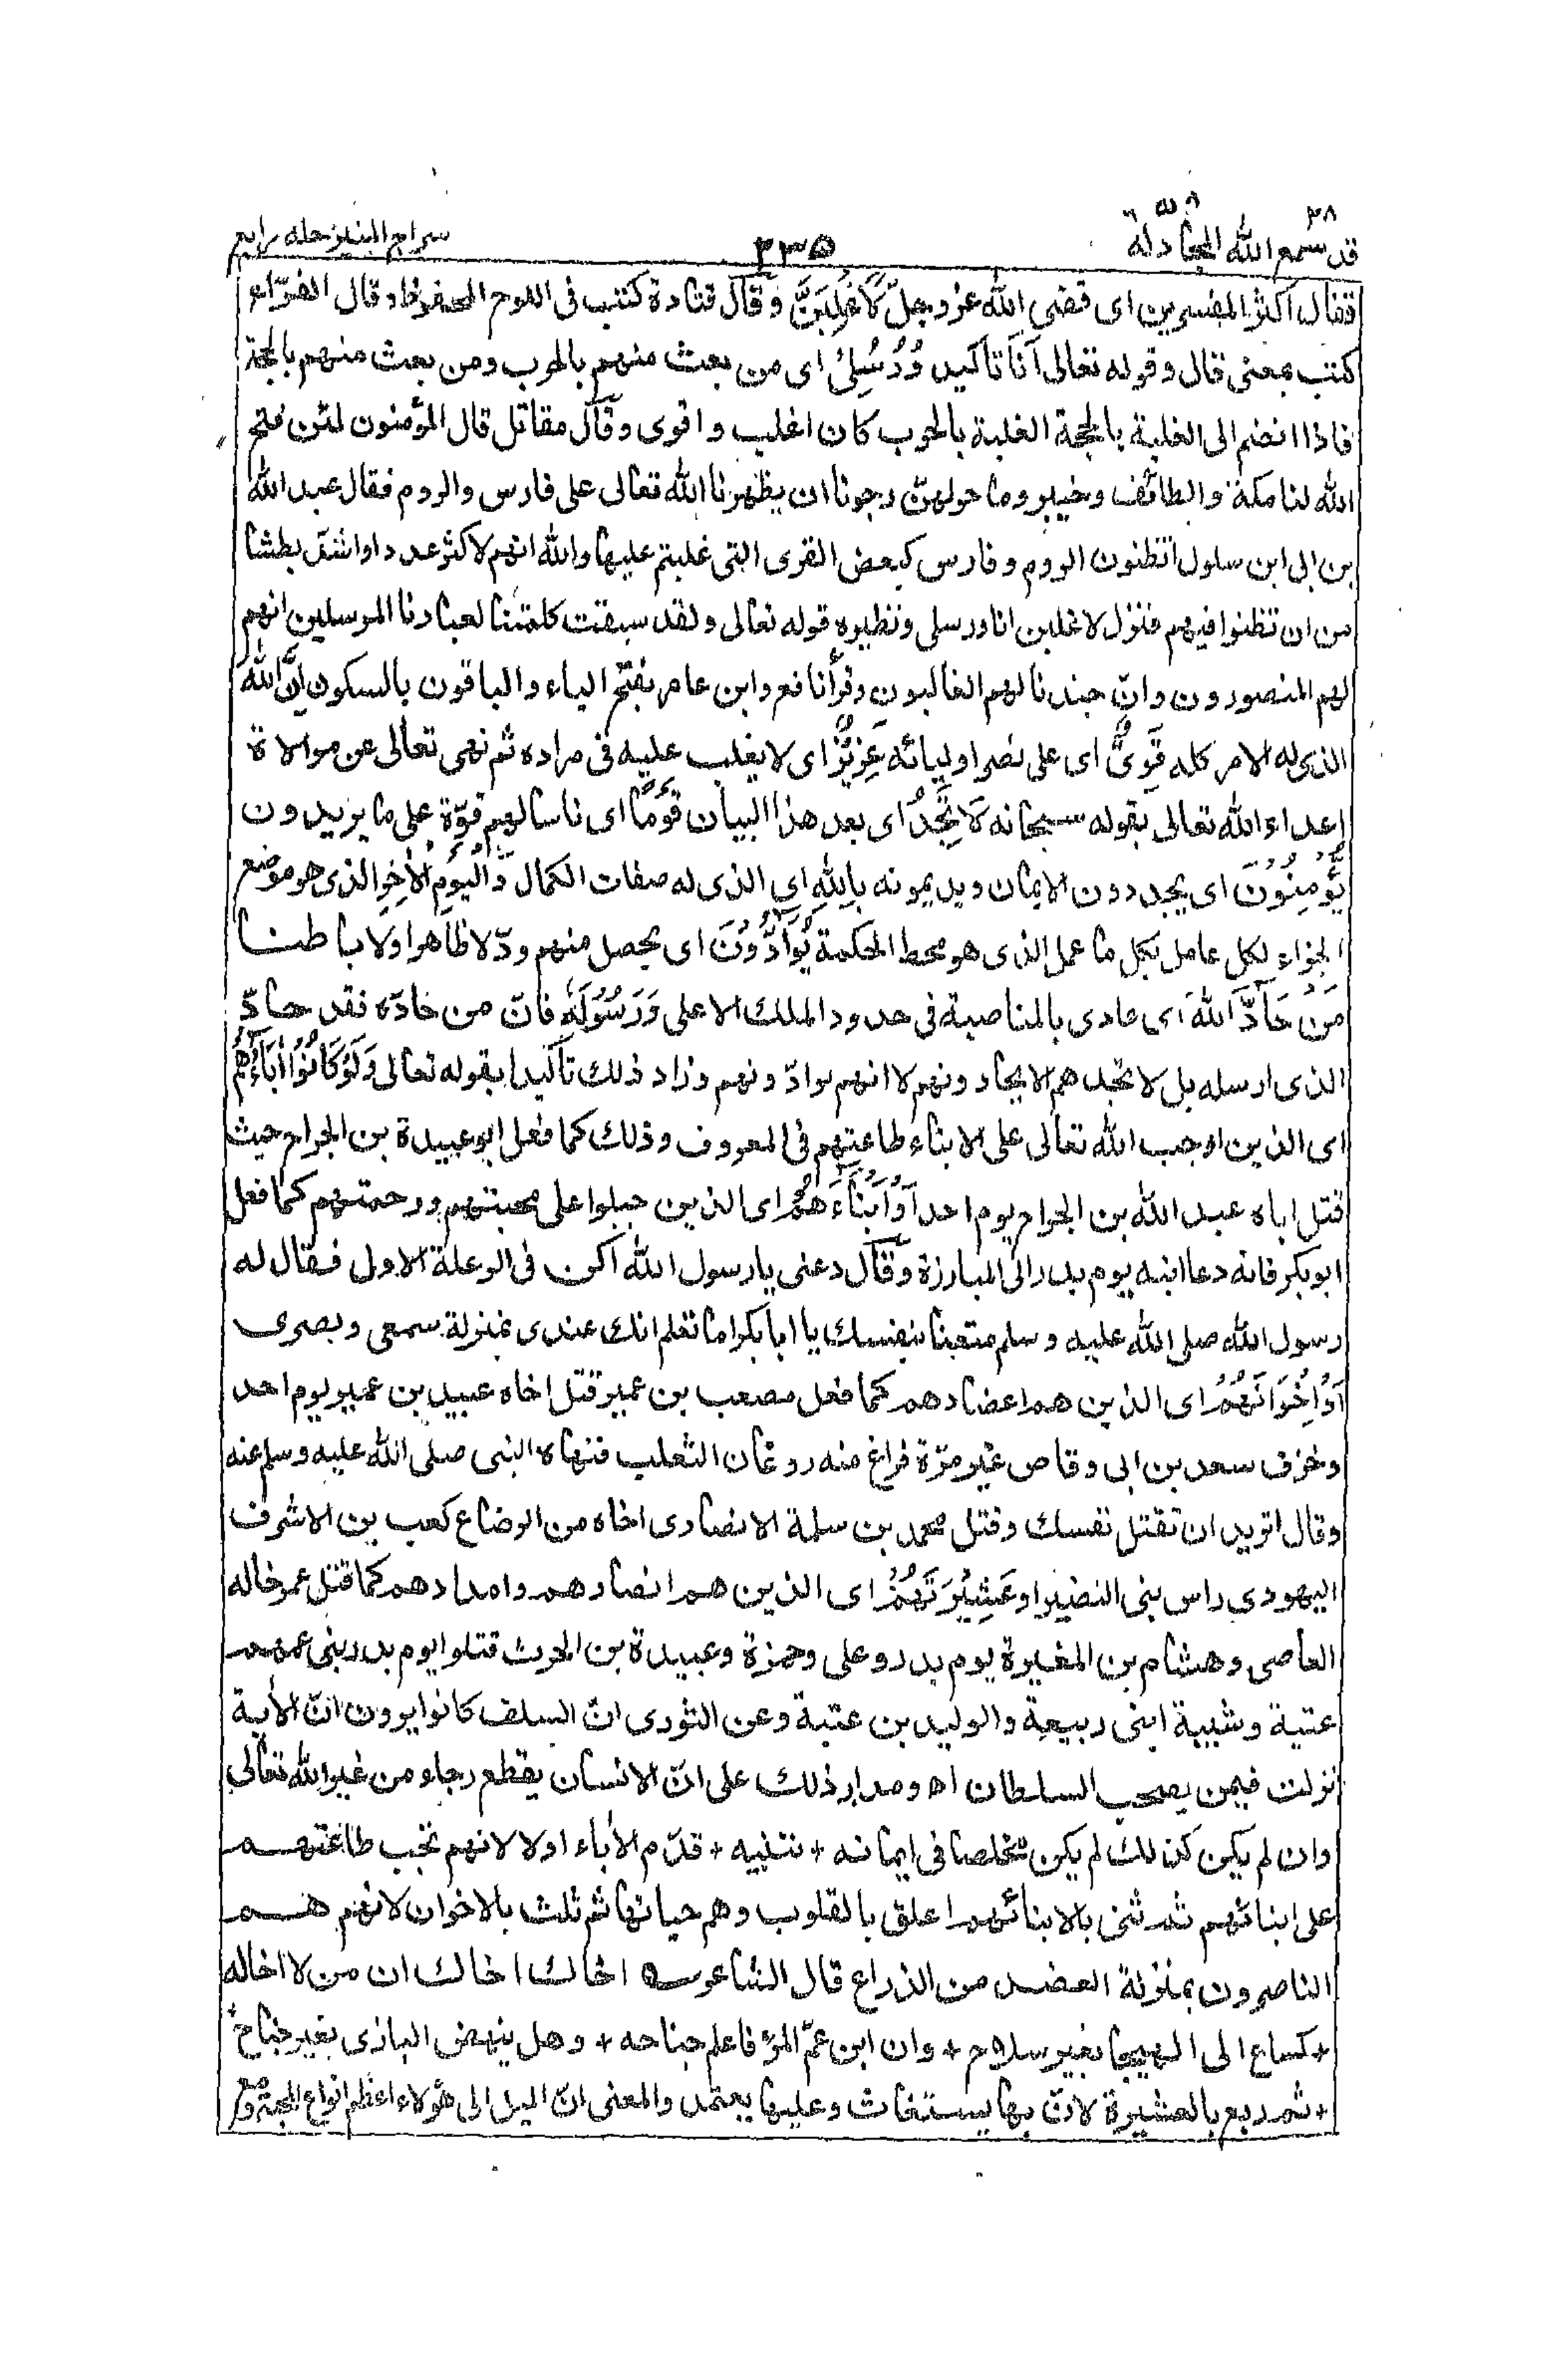 قد سمع الله ٢٨ المجادلة
٢٣٥
سراج المنير جلد رابع
فقال اكثر المفسرين اى قضى الله عز وجل لَاَغْلِبَنَّ وقال قتادة كتب فى اللوح المحفوظ وقال الفرّاء
كتب بمعنى قال وقوله تعالى اَنَا تاكيد وَرُسُلِىْ اى من بعث منهم بالحرب ومن بعث منهم بالحجة
فاذا انضم الى الغلبة بالحجة الغلبة بالحرب كان اغلب واقوى وقال مقاتل قال المؤمنون لئن فتح
الله لنا مكة والطائف وخيبر وما حولهنّ رجونا ان يظهرنا الله تعالى على فارس والروم فقال عبد الله
بن ابى ابن سلول اتظنون الروم وفارس كبعض القرى التى غلبتم عليها والله انهم لاكثر عددا واشدّ بطشا
من ان تظنوا فيهم فنزل لاغلبن انا ورسلى ونظيره قوله تعالى ولقد سبقت كلمتنا لعبادنا المرسلين انهم
لهم المنصورون وانّ جندنا لهم الغالبون وقرأ نافع وابن عامر بفتح الياء والباقون بالسكون اِنَّ اللهَ
الذى له الامر كله قَوِىٌّ اى على نصر اوليائه عَزِيْزٌ اى لا يغلب عليه فى مراده ثم نهى تعالى عن موالاة
اعداء الله تعالى بقوله سبحانه لَا تَجِدُ اى بعد هذا البيان قَوْمًا اى ناسا لهم قوّة على ما يريدون
يُّؤْمِنُوْنَ اى يجددون الايمان ويديمونه بِاللهِ اى الذى له صفات الكمال وَالْيَوْمِ الْاٰخِرِ الذى هو موضع
الجزاء لكل عامل بكل ما عمل الذى هو محط الحكمة يُوَآدُّوْنَ اى يحصل منهم ودّ لا ظاهرا ولا باطنا
مَنْ حَآدَّ اللهَ اى عادى بالمناصبة فى حدود الملك الاعلى وَرَسُوْلَهٗ فانّ من حادّه فقد حادّ
الذى ارسله بل لا تجدهم الا يحادونهم لا انهم يوادّونهم وزاد ذلك تاكيدا بقوله تعالى وَلَوْ كَانُوْا اٰبَآءَهُمْ
اى الذين اوجب الله تعالى على الابناء طاعتهم فى المعروف وذلك كما فعل ابو عبيدة بن الجراح حيث
قتل اباه عبد الله بن الجراح يوم احد اَوْ اَبْنَآءَهُمْ اى الذين جبلوا على محبتهم ورحمتهم كما فعل
ابو بكر فانه دعا ابنه يوم بدر الى المبارزة وقال دعنى يا رسول الله اكن فى الرعلة الاولى فقال له
رسول الله صلى الله عليه وسلم متعنا بنفسك يا ابا بكر اما تعلم انك عندى بمنزلة سمعى وبصرى
اَوْ اِخْوَانَهُمْ اى الذين هم اعضادهم كما فعل مصعب بن عمير قتل اخاه عبيد بن عمير يوم احد
وخرق سعد بن ابى وقاص غير مرّة فراغ منه روغان الثعلب فنهاه النبى صلى الله عليه وسلم عنه
وقال اتريد ان تقتل نفسك وقتل محمد بن سلمة الانصارى اخاه من الرضاع كعب بن الاشرف
اليهودى راس بنى النضير او عَشِيْرَتَهُمْ اى الذين هم انصارهم وامدادهم كما قتل عمر خاله
العاصى وهشام بن المغيرة يوم بدر وعلى وحمزة وعبيدة بن الحرث قتلوا يوم بدر بنى عمهم
عتبة وشيبة ابنى ربيعة والوليد بن عتبة وعن الثورى انّ السلف كانوا يرون انّ الاٰية
نزلت فيمن يصحب السلطان اه ومدار ذلك على انّ الانسان يقطع رجاءه من غير الله تعالى
وان لم يكن كذلك لم يكن مخلصا فى ايمانه + تنبيه + قدّم الاٰباء اولا لانهم تجب طاعتهم
على ابنائهم ثم ثنى بالابناء لانهم اعلق بالقلوب وهم حياتها ثم ثلث بالاخوان لانهم هم
الناصرون بمنزلة العضد من الذراع قال الشاعر اخاك اخاك ان من لا اخا له
+ كساع الى الهيجا بغير سلاح + وان ابن عمّ المرء فاعلم جناحه + وهل ينهض البازى بغير جناح
+ ثم ربع بالعشيرة لانّ بها يستغاث وعليها يعتمد والمعنى انّ الميل الى هؤلاء اعظم انواع المحبة